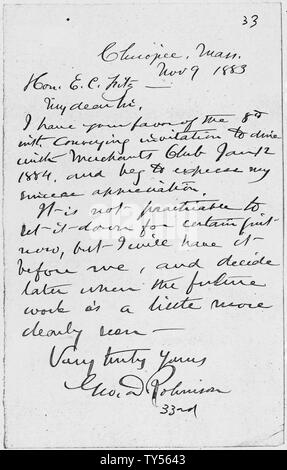 33
Chicopee, Mass.
Nov 9 1883
Hon. E. C. Fitz —
My dear Sir,
I have your favor of the 8th
inst conveying invitation to dine
with Merchants Club Jan 12
1884, and beg to express my
sincere appreciation.
It is not practicable to
set it down for certain just
now, but I will have it
before me, and decide
later when the future
work is a little more
clearly seen —
Very truly yours
Geo. D. Robinson
33rd
alamy
TY5643